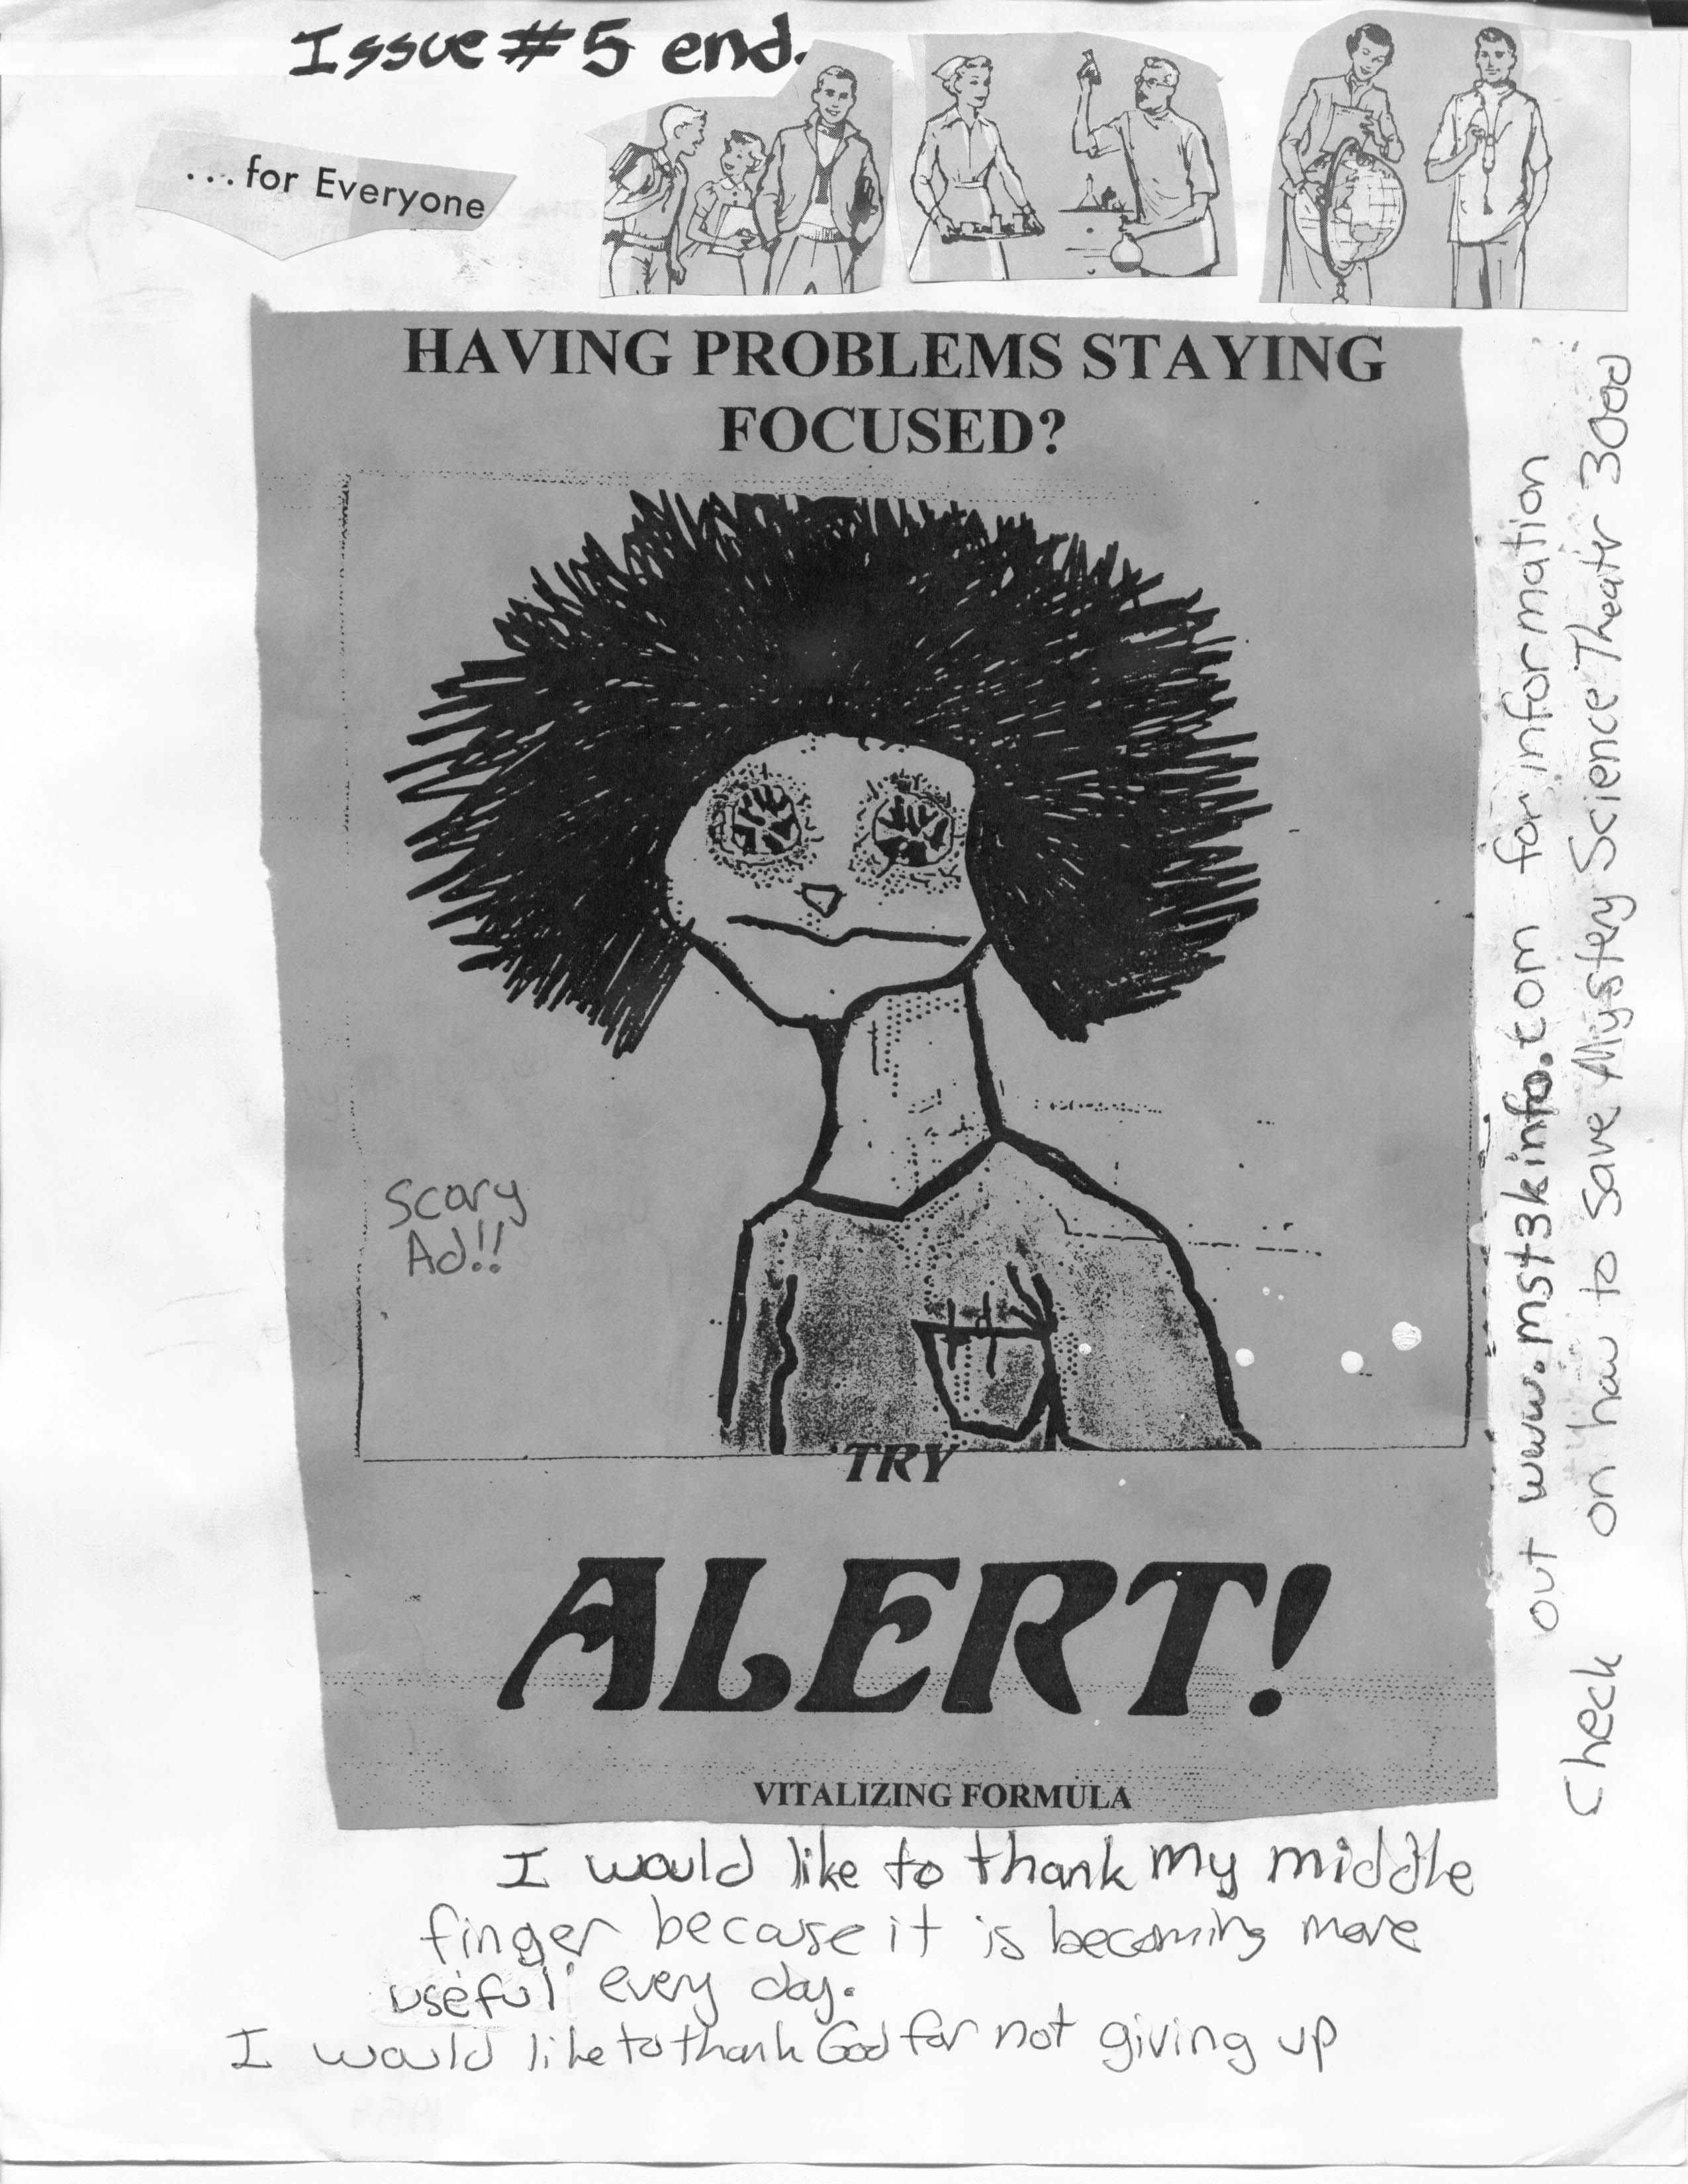 Issue #5 end.
...for Everyone
HAVING PROBLEMS STAYING
FOCUSED?
Scary
Ad!!
TRY
ALERT!
VITALIZING FORMULA
Check out www.mst3kinfo.com for information
on how to save Mystery Science Theater 3000
I would like to thank my middle
finger because it is becoming more
useful every day.
I would like to thank God for not giving up